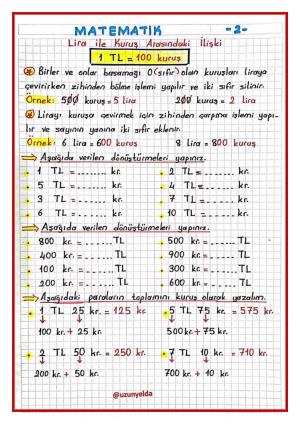 MATEMATİK -2-
Lira ile Kuruş Arasındaki İlişki
1 TL = 100 kuruş
Birler ve onlar basamağı 0 (sıfır) olan kuruşları liraya
çevirirken zihinden bölme işlemi yapılır ve iki sıfır silinir.
Örnek: 500 kuruş = 5 lira 200 kuruş = 2 lira
Lirayı kuruşa çevirmek için zihinden çarpma işlemi yapı-
lır ve sayının yanına iki sıfır eklenir.
Örnek: 6 lira = 600 kuruş 8 lira = 800 kuruş
Aşağıda verilen dönüştürmeleri yapınız.
1 TL = ....... kr. 2 TL = ....... kr.
5 TL = ....... kr. 4 TL = ....... kr.
3 TL = ....... kr. 7 TL = ....... kr.
6 TL = ....... kr. 10 TL = ....... kr.
Aşağıda verilen dönüştürmeleri yapınız.
800 kr. = ...... TL 500 kr. = ...... TL
400 kr. = ...... TL 900 kr. = ...... TL
100 kr. = ...... TL 300 kr. = ...... TL
200 kr. = ...... TL 600 kr. = ...... TL
Aşağıdaki paraların toplamını kuruş olarak yazalım.
1 TL 25 kr. = 125 kr. 5 TL 75 kr. = 575 kr.
100 kr. + 25 kr. 500 kr. + 75 kr.
2 TL 50 kr. = 250 kr. 7 TL 10 kr. = 710 kr.
200 kr. + 50 kr. 700 kr. + 10 kr.
@uzunyelda